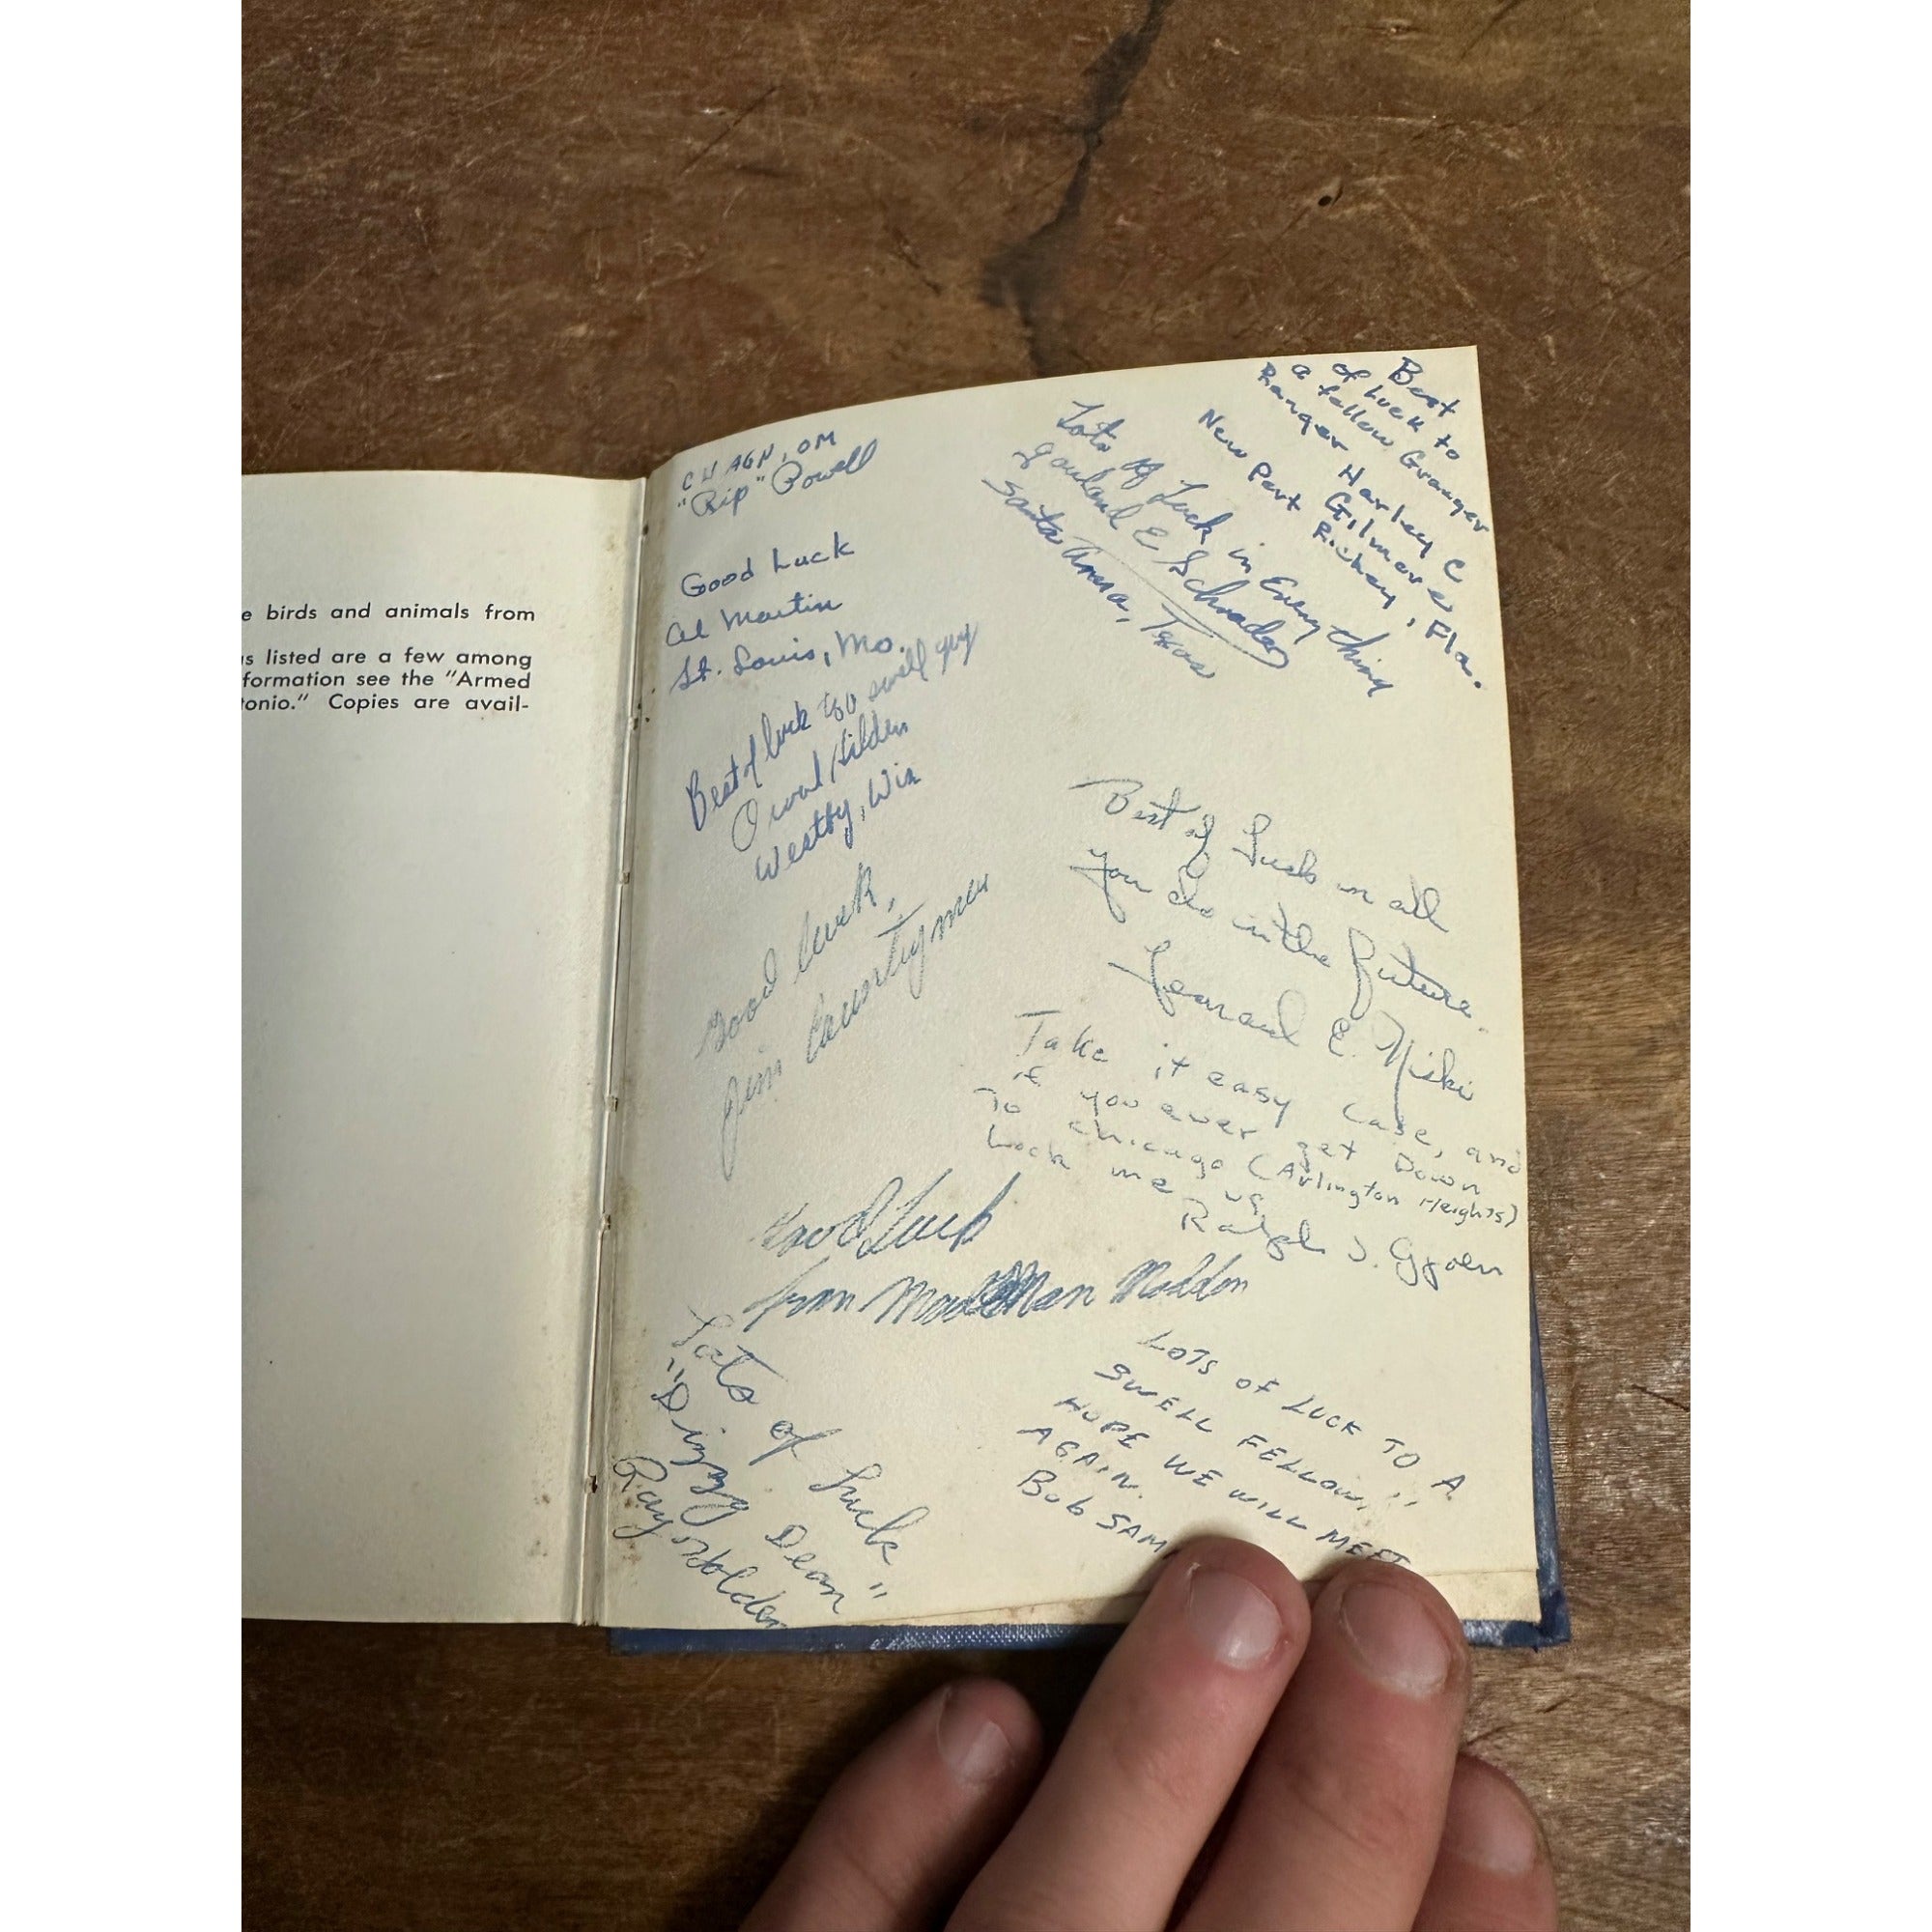 e birds and animals from
as listed are a few among
formation see the "Armed
tonio." Copies are avail-
C U AGN, OM
"Rip" Powell
Good Luck
Al Martin
St. Louis, Mo.
Best of luck to a swell guy
Orval Hilden
Westby, Wis
Good Luck,
Jim
Good Luck
from Man Maddon
Lots of Luck
"Dizzy Dean"
Ray Holder
Best
of Luck to
a fellow Granger
Ranger Harley C
Gilmore
New Port Richey, Fla.
Lots of Luck in Everything
Garland E Schrader
Santa Anna, Texas
Best of Luck in all
you do in the future.
E. Niski
Take it easy Case, and
if you ever get Down
To Chicago (Arlington Heights)
Look me up
Ralph J.
LOTS OF LUCK TO A
SWELL FELLOW,
HOPE WE WILL MEET
AGAIN.
Bob SAM